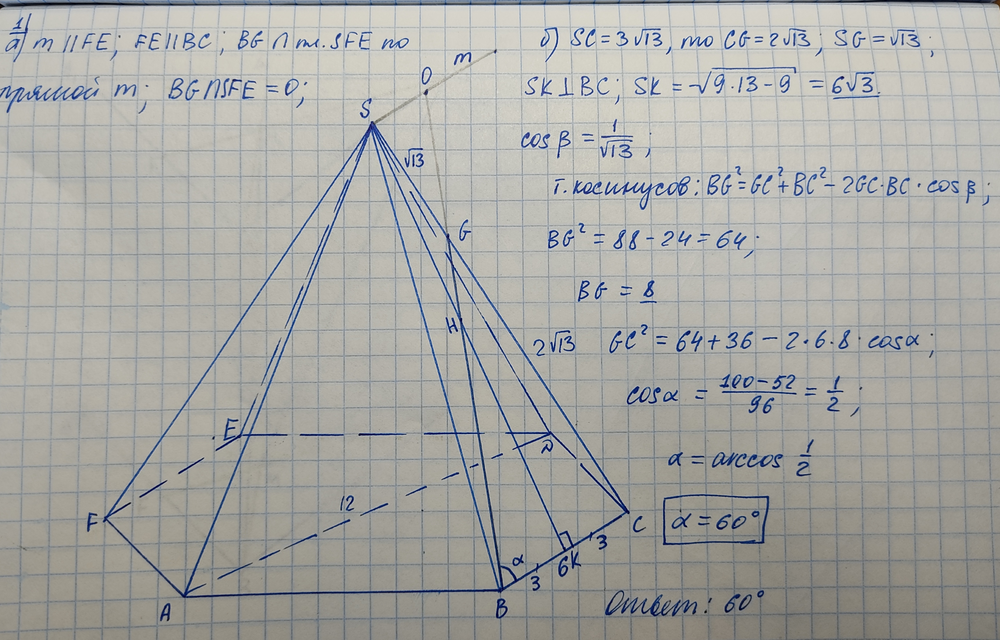 1)
а) m || FE; FE || BC; BG ∩ пл. SFE по
прямой m; BG ∩ SFE = O;
б) SC = 3√13, то CG = 2√13; SG = √13;
SK ⊥ BC; SK = √(9·13-9) = 6√3.
cos β = 1/√13;
т. косинусов: BG² = GC² + BC² - 2GC·BC·cos β;
BG² = 88 - 24 = 64;
BG = 8
GC² = 64 + 36 - 2·6·8·cos α;
cos α = (100-52)/96 = 1/2;
α = arccos 1/2
α = 60°
Ответ: 60°
m
O
S
√13
G
H
2√13
E
D
F
12
C
3
6
K
α
3
A
B